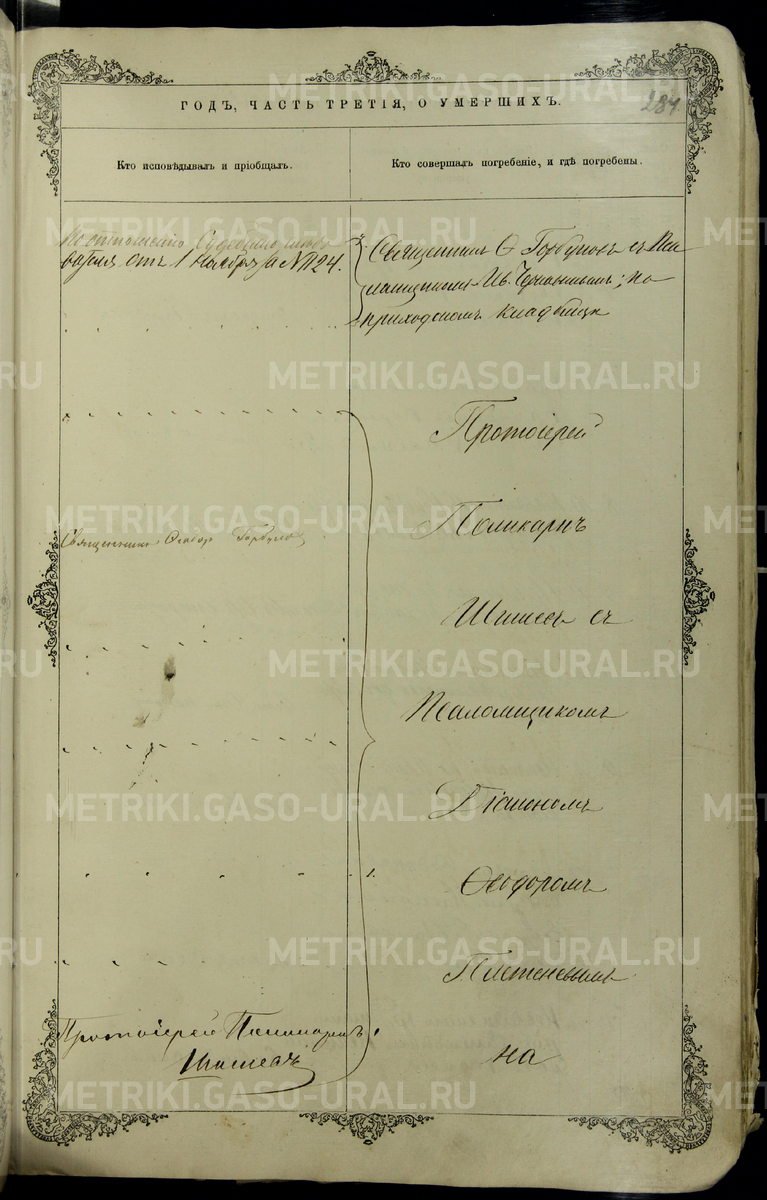 ГОДЪ, ЧАСТЬ ТРЕТІЯ, О УМЕРШИХЪ.
284
Кто исповѣдывалъ и пріобщалъ.
Кто совершалъ погребеніе, и гдѣ погребены.
По отношенію Судебнаго слѣдо
вателя отъ 1 Ноября № 1124.
Священникъ Ѳ Горбуновъ съ Пса
ломщикомъ Ив. ; на
приходскомъ кладбищѣ
Протоіерей
Священникъ Ѳеодоръ Горбуновъ
Поликарпъ
съ
Псаломщикомъ
Діакономъ
Ѳеодоромъ
Плетеневымъ
Протоіерей Поликарпъ
на
METRIKI.GASO-URAL.RU